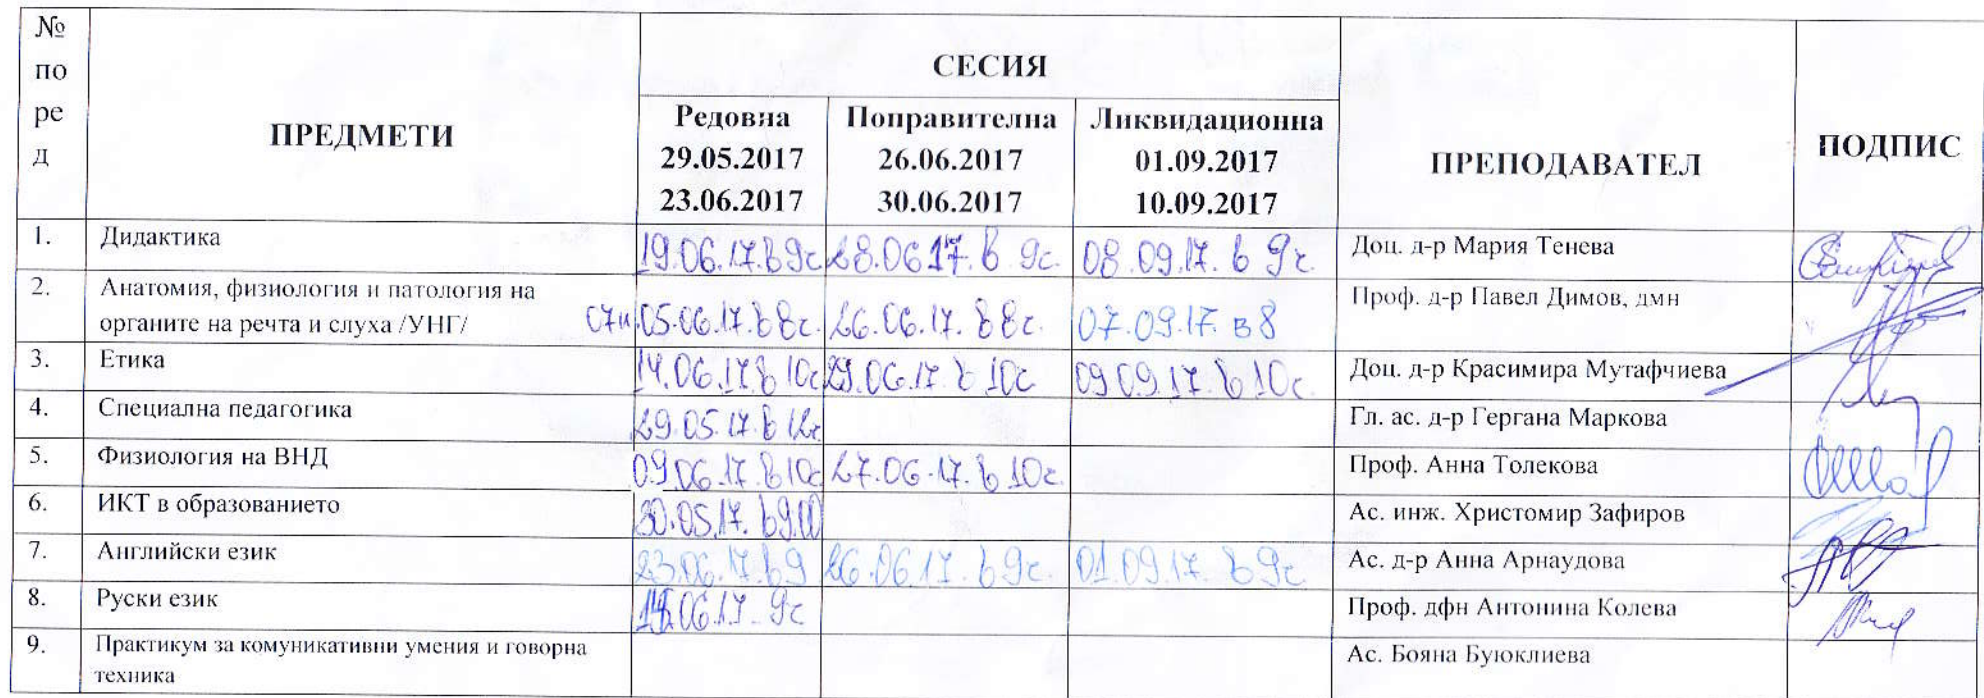 № по ре д
ПРЕДМЕТИ
СЕСИЯ
ПРЕПОДАВАТЕЛ
ПОДПИС
Редовна 29.05.2017 23.06.2017
Поправителна 26.06.2017 30.06.2017
Ликвидационна 01.09.2017 10.09.2017
1. Дидактика 19.06.17.в 9ч 28.06.17. в 9ч. 08.09.17. в 9ч. Доц. д-р Мария Тенева
2. Анатомия, физиология и патология на
органите на речта и слуха /УНГ/ 05.06.17.в 8ч. 26.06.17. в 8ч. 07.09.17. в 8 Проф. д-р Павел Димов, дмн
3. Етика 14.06.17 в 10ч 29.06.17. в 10ч 09.09.17. в 10ч. Доц. д-р Красимира Мутафчиева
4. Специална педагогика 29.05.17. в 12ч. Гл. ас. д-р Гергана Маркова
5. Физиология на ВНД 09.06.17. в 10ч 27.06.17. в 10ч. Проф. Анна Толекова
6. ИКТ в образованието 30.05.17. в 9.00 Ас. инж. Христомир Зафиров
7. Английски език 23.06.17. в 9 26.06.17. в 9ч. 01.09.17. в 9ч Ас. д-р Анна Арнаудова
8. Руски език 06.17 9ч Проф. дфн Антонина Колева
9. Практикум за комуникативни умения и говорна
техника Ас. Бояна Буюклиева